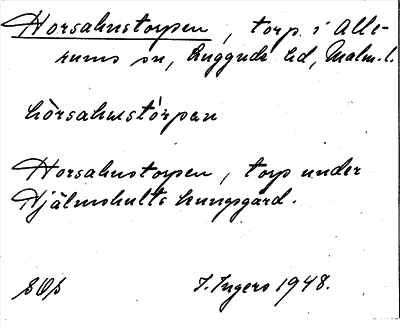 Horsahustorpen, torp i Alle-
rums sn, Luggude hd, Malm. l.
hòrsahustórpan
Horsahustorpen, torp under
Hjälmshults kungsgård.
SOÞ
I. Ingers 1948.